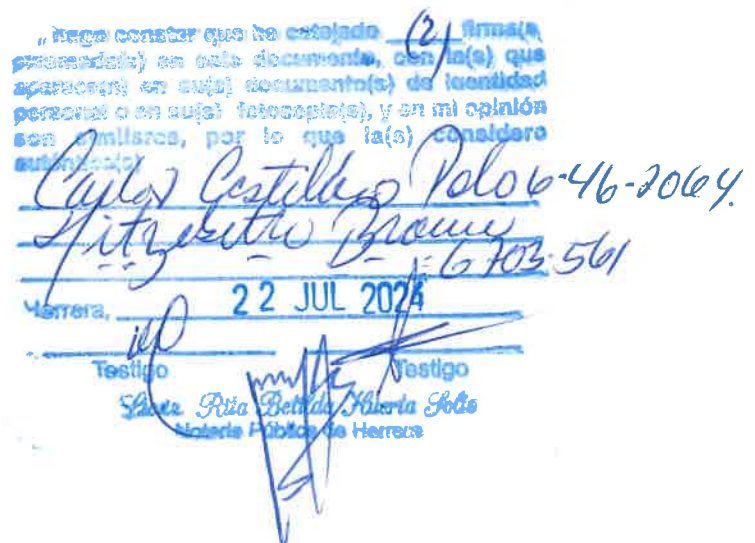 hago constar que he cotejado (2) firma(s)
en este documento, con la(s) que
aparece(n) en su(s) documento(s) de identidad
personal o en su(s) fotocopia(s), y en mi opinión
son similares, por lo que la(s) considero
auténtica(s)
Carlos Castillero Polo 6-46-2064.
Brown
6703-561
Herrera, 22 JUL 2024
Testigo Testigo
Rita Betilda Huerta Solis
Notaria Pública de Herrera